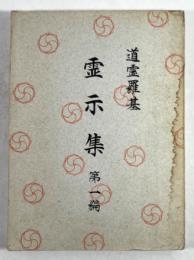 道霊羅基
霊示集
第一編